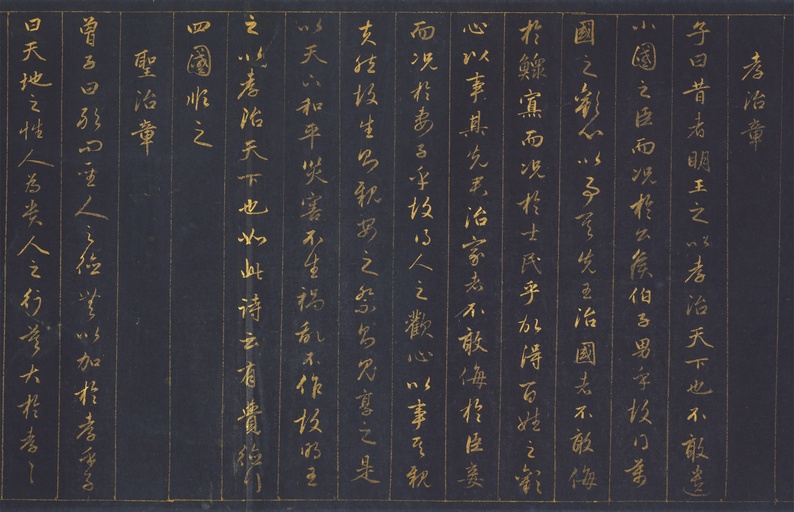 孝治章
子曰昔者明王之以孝治天下也不敢遺
小國之臣而况於公侯伯子男乎故得萬
國之歡心以事其先王治國者不敢侮
於鰥寡而况於士民乎故得百姓之歡
心以事其先君治家者不敢侮於臣妾
而况於妻子乎故得人之歡心以事其親
夫然故生則親安之祭則鬼享之是
以天下和平災害不生禍亂不作故明王
之以孝治天下也如此詩云有覺德行
四國順之
聖治章
曾子曰敢問聖人之德無以加於孝乎子
曰天地之性人為貴人之行莫大於孝〻